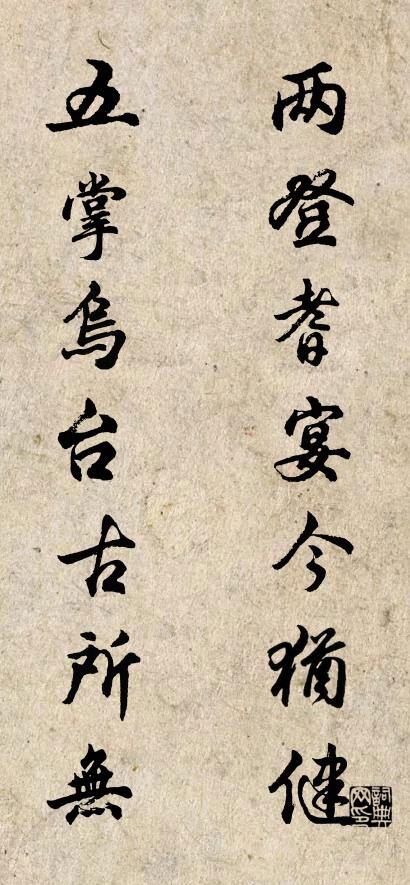 两登耆宴今猶健
五掌烏台古所無
詞典网印